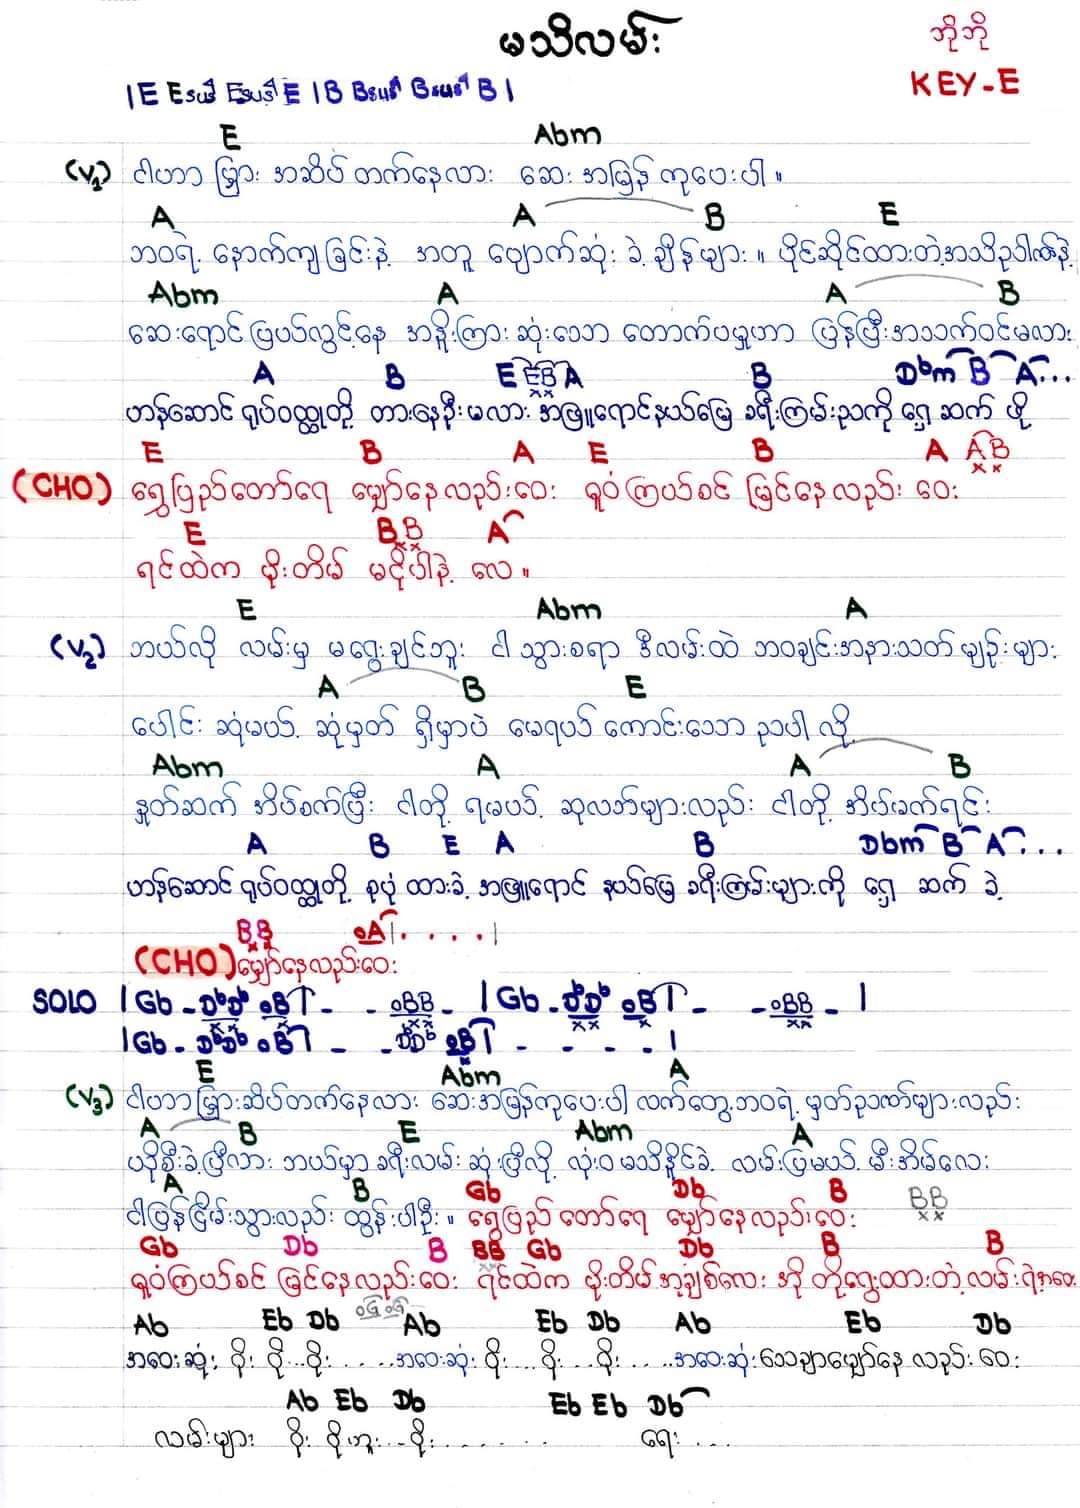 မသိလမ်း
ဘိုဘို
KEY-E
| E Esus4 Esus4 E | B Bsus4 Bsus4 B |
E Abm
(V1) ငါဟာ မြှား အဆိပ် တက်နေလား ဆေး အမြန် ကုပေးပါ။
A A B E
ဘဝရဲ့ နောက်ကျခြင်းနဲ့ အတူ ပျောက်ဆုံး ခဲ့ ချိန်များ။ ပိုင်ဆိုင်ထားတဲ့အသိဥာဏ်နဲ့
Abm A A B
ဆေးရောင်ပြယ်လွင့်နေ အနီးကြားဆုံးသော တောက်ပမှုဟာ ပြန်ပြီးအသက်ဝင်မလား
A B E EB A B Dbm B A...
ဟန်ဆောင် ရုပ်ဝတ္ထုတို့ တားနေဦးမလား အဖြူရောင်နယ်မြေ ခရီးကြမ်းညကို ရှေ့ဆက် ဖို့
E B A E B A A B
(CHO) ရွှေပြည်တော်ရေ မျှော်နေလည်းဝေး ရူဝံကြယ်စင် မြင်နေလည်း ဝေး
E B B A
ရင်ထဲက မိုးတိမ် မငိုပါနဲ့ လေ။
E Abm A
(V2) ဘယ်လို လမ်းမှ မရွေးချင်ဘူး ငါ သွားစရာ ဒီလမ်းထဲ ဘဝချင်းအနားသတ်မျဉ်းများ
A B E
ပေါင်း ဆုံမယ့် ဆုံမှတ် ရှိမှာပဲ မေရယ် ကောင်းသော ညပါ လို့
Abm A A B
နှုတ်ဆက် အိပ်စက်ပြီး ငါတို့ ရမယ့် ဆုလာဘ်များလည်း ငါတို့ အိပ်မက်ရင်း
A B E A B Dbm B A...
ဟန်ဆောင် ရုပ်ဝတ္ထုတို့ စုပုံ ထားခဲ့ အဖြူရောင် နယ်မြေ ခရီးကြမ်းများကို ရှေ့ ဆက် ခဲ့
B B oA | . . . . |
(CHO) မျှော်နေလည်းဝေး
SOLO | Gb - Db Db oB - - oBB - | Gb - Db Db oB - - oBB - |
| Gb - Db Db oB - - Db Db oB - - - - |
E Abm A
(V3) ငါဟာ မြှားဆိပ်တက်နေလား ဆေးအမြန်ကုပေးပါ လက်တွေ့ဘဝရဲ့ မှတ်ဥာဏ်များလည်း
A B E Abm A
ယိုစီးခဲ့ပြီလား ဘယ်မှာ ခရီးလမ်း ဆုံးပြီလို့ လုံးဝ မသိနိုင်ခဲ့ လမ်းပြမယ့် မီးအိမ်လေး
A B Gb Db B BB
ငါပြန်ငြိမ်းသွားလည်း ထွန်းပါဦး။ ရွှေပြည်တော်ရေ မျှော်နေလည်းဝေး
Gb Db B BB Gb Db B B
ရူဝံကြယ်စင် မြင်နေလည်းဝေး ရင်ထဲက မိုးတိမ်အုံချစ်လေး အို တို့ရွေးထားတဲ့လမ်းရဲ့အဝေး
Ab Eb Db oG oG Ab Eb Db Ab Eb Db
အဝေးဆုံး ဝိုး ဝို...ဝိုး.....အဝေးဆုံး ဝိုး...ဝိုး...ဝိုး.....အဝေးဆုံးသေချာမျှော်နေ လည်း ဝေး
Ab Eb Db Eb Eb Db
လမ်းများ ဝိုး ဝိုဟူး...ဝိုး....... ရေး ...